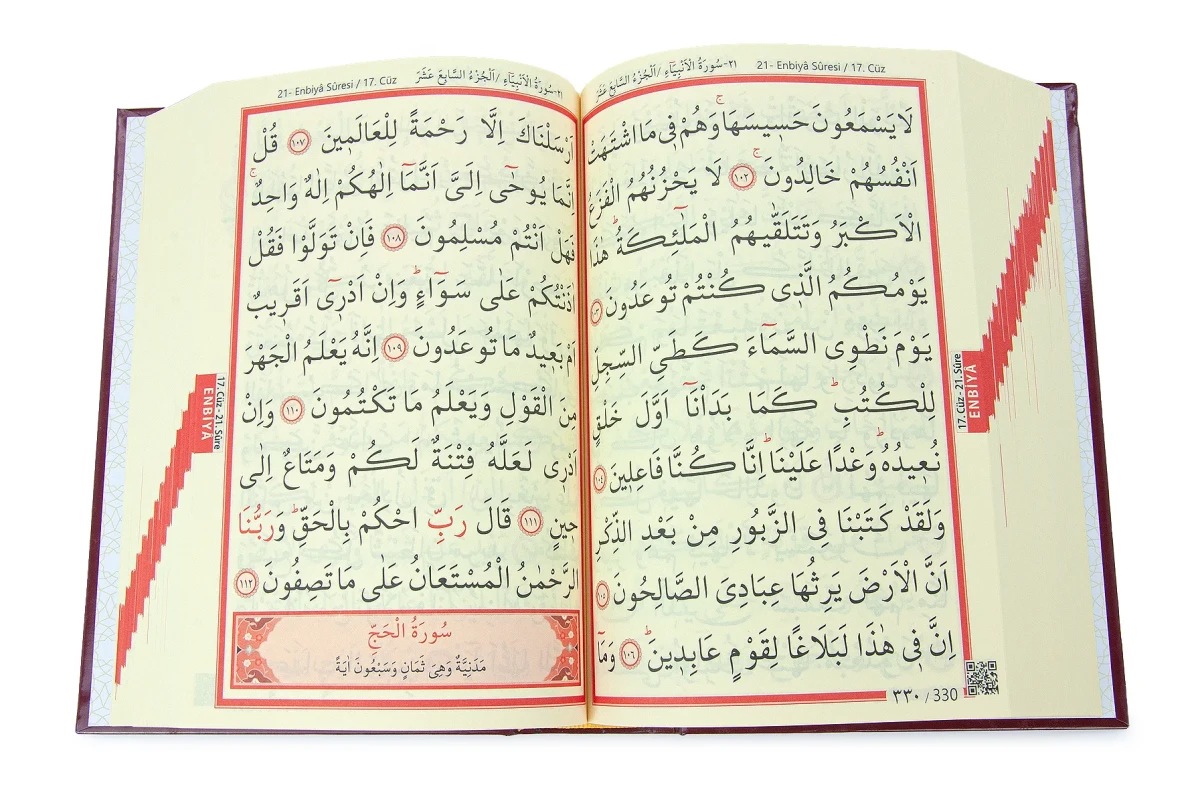 ٢١-سُورَةُ الْاَنْبِيَٓاءِ /اَلْجُزْءُ السَّابِعَ عَشَرَ 21- Enbiyâ Sûresi / 17. Cüz
لَا يَسْمَعُونَ حَسٖيسَهَاۚ وَهُمْ فٖى مَا اشْتَهَتْ
اَنْفُسُهُمْ خَالِدُونَۚ ﴿١٠٢﴾ لَا يَحْزُنُهُمُ الْفَزَعُ
الْاَكْبَرُ وَتَتَلَقّٰيهُمُ الْمَلٰٓئِكَةُؕ هٰذَا
يَوْمُكُمُ الَّذٖى كُنْتُمْ تُوعَدُونَ ﴿١٠٣﴾
يَوْمَ نَطْوِى السَّمَٓاءَ كَطَىِّ السِّجِلِّ
لِلْكُتُبِؕ كَمَا بَدَاْنَٓا اَوَّلَ خَلْقٍ
نُعٖيدُهُؕ وَعْدًا عَلَيْنَاؕ اِنَّا كُنَّا فَاعِلٖينَ ﴿١٠٤﴾
وَلَقَدْ كَتَبْنَا فِى الزَّبُورِ مِنْ بَعْدِ الذِّكْرِ
اَنَّ الْاَرْضَ يَرِثُهَا عِبَادِىَ الصَّالِحُونَ ﴿١٠٥﴾
اِنَّ فٖى هٰذَا لَبَلَاغًا لِقَوْمٍ عَابِدٖينَؕ ﴿١٠٦﴾ وَمَٓا
٣٣٠ / 330
17. Cüz - 21. Sûre
ENBİYÂ
21- Enbiyâ Sûresi / 17. Cüz ٢١-سُورَةُ الْاَنْبِيَٓاءِ /اَلْجُزْءُ السَّابِعَ عَشَرَ
اَرْسَلْنَاكَ اِلَّا رَحْمَةً لِلْعَالَمٖينَ ﴿١٠٧﴾ قُلْ
اِنَّمَا يُوحٰٓى اِلَىَّ اَنَّمَٓا اِلٰهُكُمْ اِلٰهٌ وَاحِدٌۚ
فَهَلْ اَنْتُمْ مُسْلِمُونَ ﴿١٠٨﴾ فَاِنْ تَوَلَّوْا فَقُلْ
اٰذَنْتُكُمْ عَلٰى سَوَٓاءٍؕ وَاِنْ اَدْرٖٓى اَقَرٖيبٌ
اَمْ بَعٖيدٌ مَا تُوعَدُونَ ﴿١٠٩﴾ اِنَّهُ يَعْلَمُ الْجَهْرَ
مِنَ الْقَوْلِ وَيَعْلَمُ مَا تَكْتُمُونَ ﴿١١٠﴾ وَاِنْ
اَدْرٖى لَعَلَّهُ فِتْنَةٌ لَكُمْ وَمَتَاعٌ اِلٰى
حٖينٍ ﴿١١١﴾ قَالَ رَبِّ احْكُمْ بِالْحَقِّؕ وَرَبُّنَا
الرَّحْمٰنُ الْمُسْتَعَانُ عَلٰى مَا تَصِفُونَ ﴿١١٢﴾
سُورَةُ الْحَجِّ
مَدَنِيَّةٌ وَهِىَ ثَمَانٍ وَسَبْعُونَ اٰيَةً
17. Cüz - 21. Sûre
ENBİYÂ